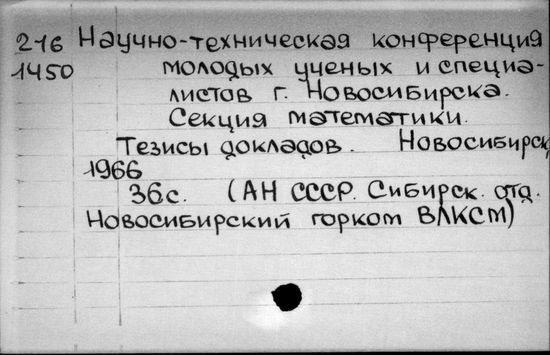 216 Научно-техническая конференция
1450 молодых ученых и специа-
листов г. Новосибирска.
Секция математики.
Тезисы докладов. Новосибирск
1966
36с. (АН СССР. Сибирск. отд.
Новосибирский горком ВЛКСМ)